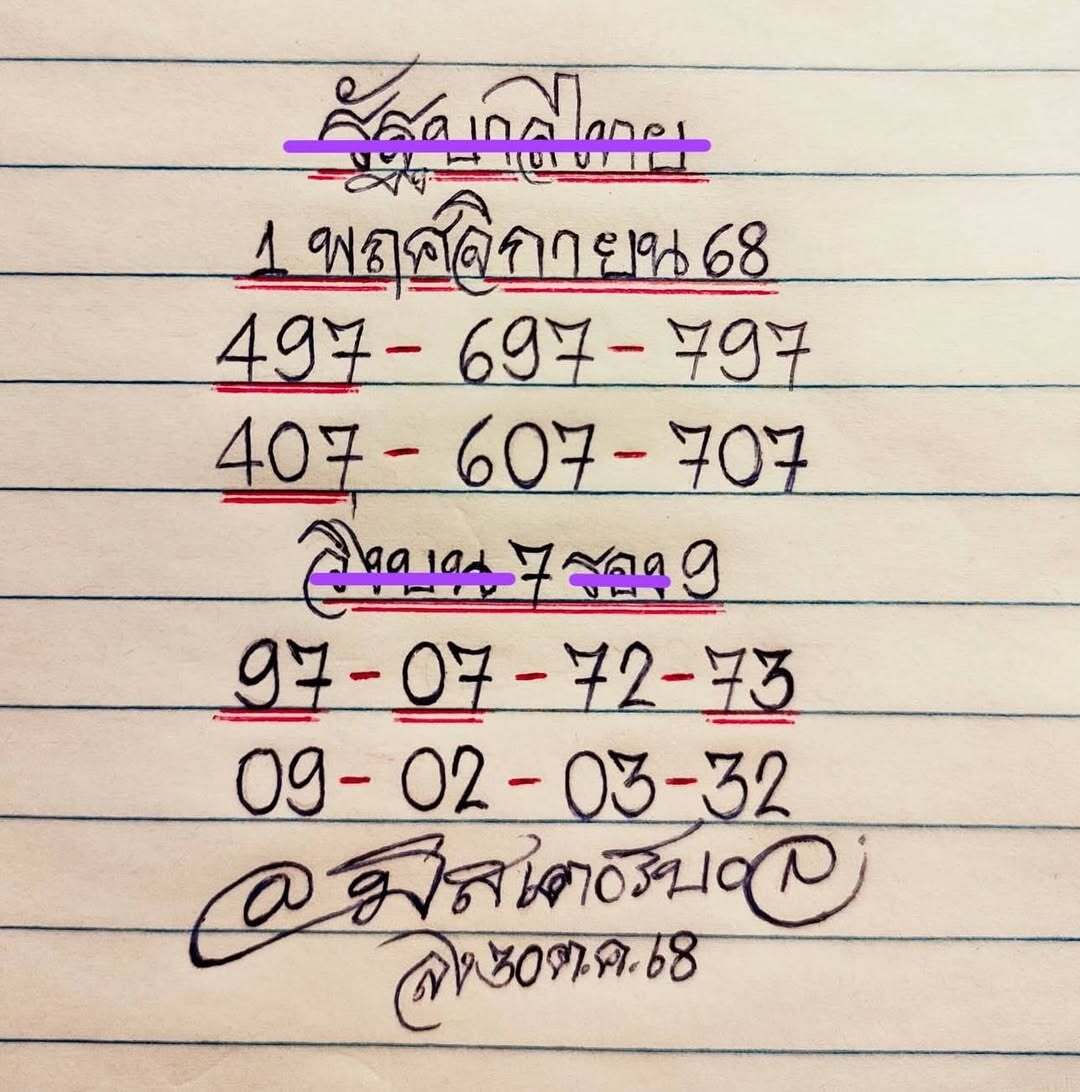 รัฐบาลไทย
1 พฤศจิกายน 68
497 - 697 - 797
407 - 607 - 707
วิ่งบน 7 รอง 9
97 - 07 - 72 - 73
09 - 02 - 03 - 32
@มิสเตอร์บอล
ลง 30 ต.ค. 68